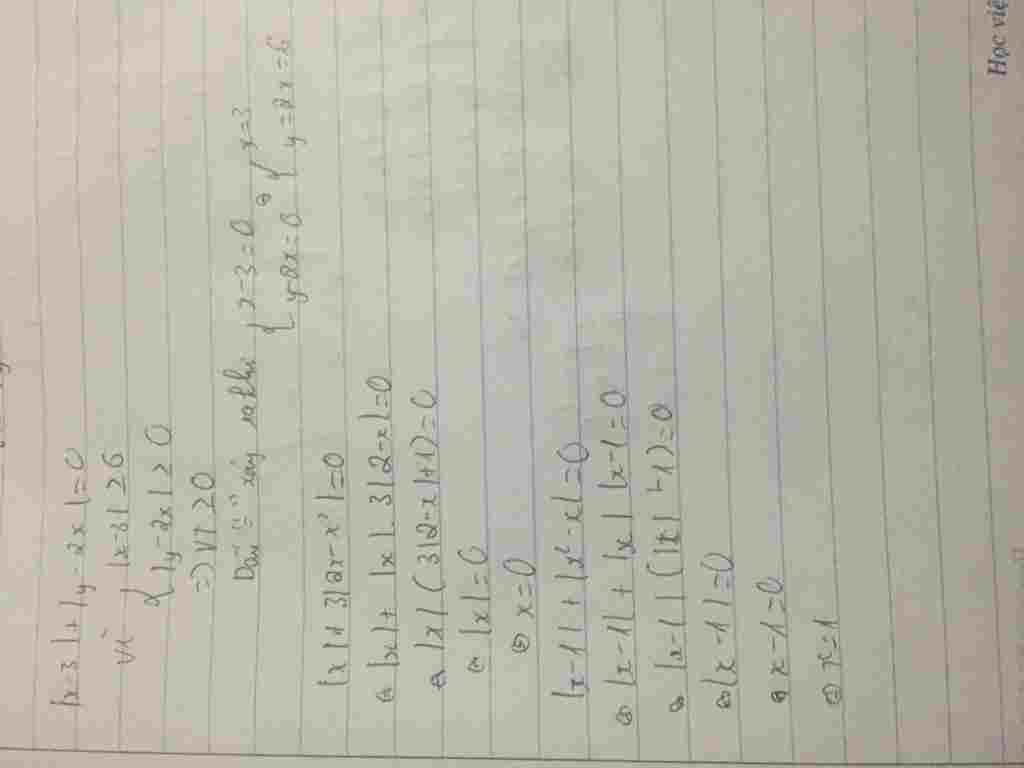 |x-3|+|y-2x|=0
Vì { |x-3| ≥ 0
|y-2x| ≥ 0
=> VT ≥ 0
Dấu "=" xảy ra khi { x-3=0 ⇔ { x=3
y-2x=0 y=2x=6
|x|+3|2x-x²|=0
⇔ |x|+|x|.3|2-x|=0
⇔ |x|(3|2-x|+1)=0
⇔ |x|=0
⇔ x=0
|x-1|+|x²-x|=0
⇔ |x-1|+|x||x-1|=0
⇔ |x-1|(|x|+1)=0
⇔ |x-1|=0
⇔ x-1=0
⇔ x=1
Học việ